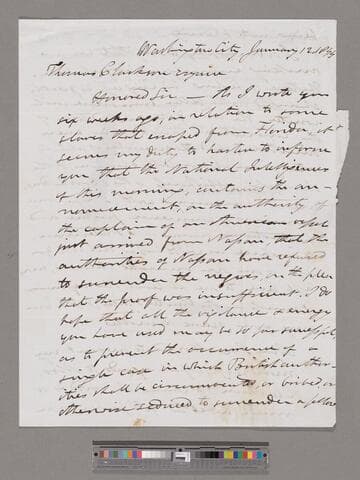 Washington City January 12. 1844
Thomas Clarkson esquire
Honored Sir — As I wrote you
six weeks ago, in relation to some
slaves that escaped from Florida, it
seems my duty to hasten to inform
you that the National Intelligencer
of this morning, contains the an-
nouncement, on the authority of
the captain of an American vessel
just arrived from Nassau that the
authorities of Nassau have refused
to surrender the negroes, on the plea
that the proof was insufficient. I do
hope that all the vigilance & energy
you have used may be so far successful,
as to prevent the occurrence of a
single case in which British author-
ities shall be circumvented, or bribed, or
otherwise seduced to surrender a fellow